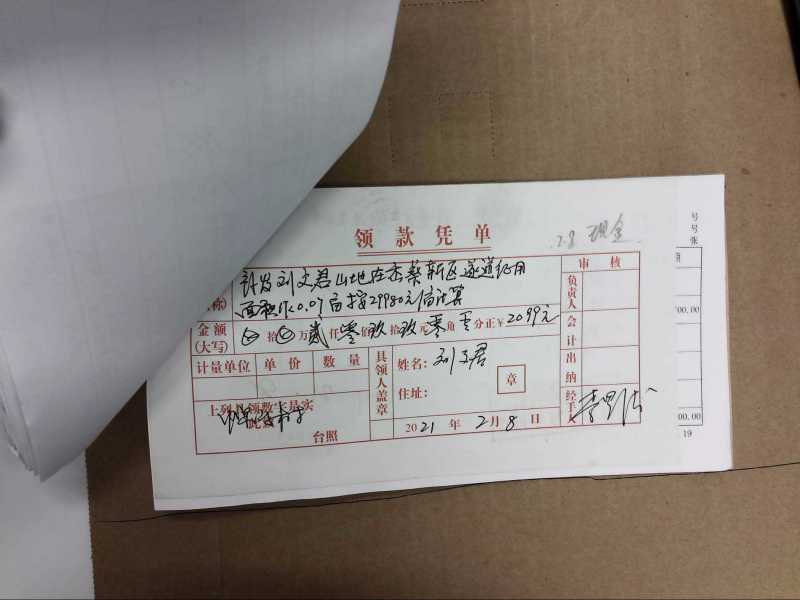 领款凭单
2.8 现金
计发刘文君山地在杰蔡新区隧道征用
称)
面积 0.07亩按29980元/亩计算
审核
负责人
金额
(大写)
拾 万贰仟零佰玖拾玖元零角零分正¥2099元
会计
计量单位 单价 数量
具领人盖章
姓名: 刘文君
住址:
章
出纳
经手人
上列 领数 是实
此
台照
2021年2月8日
号
号
张
00.00
00.00
19